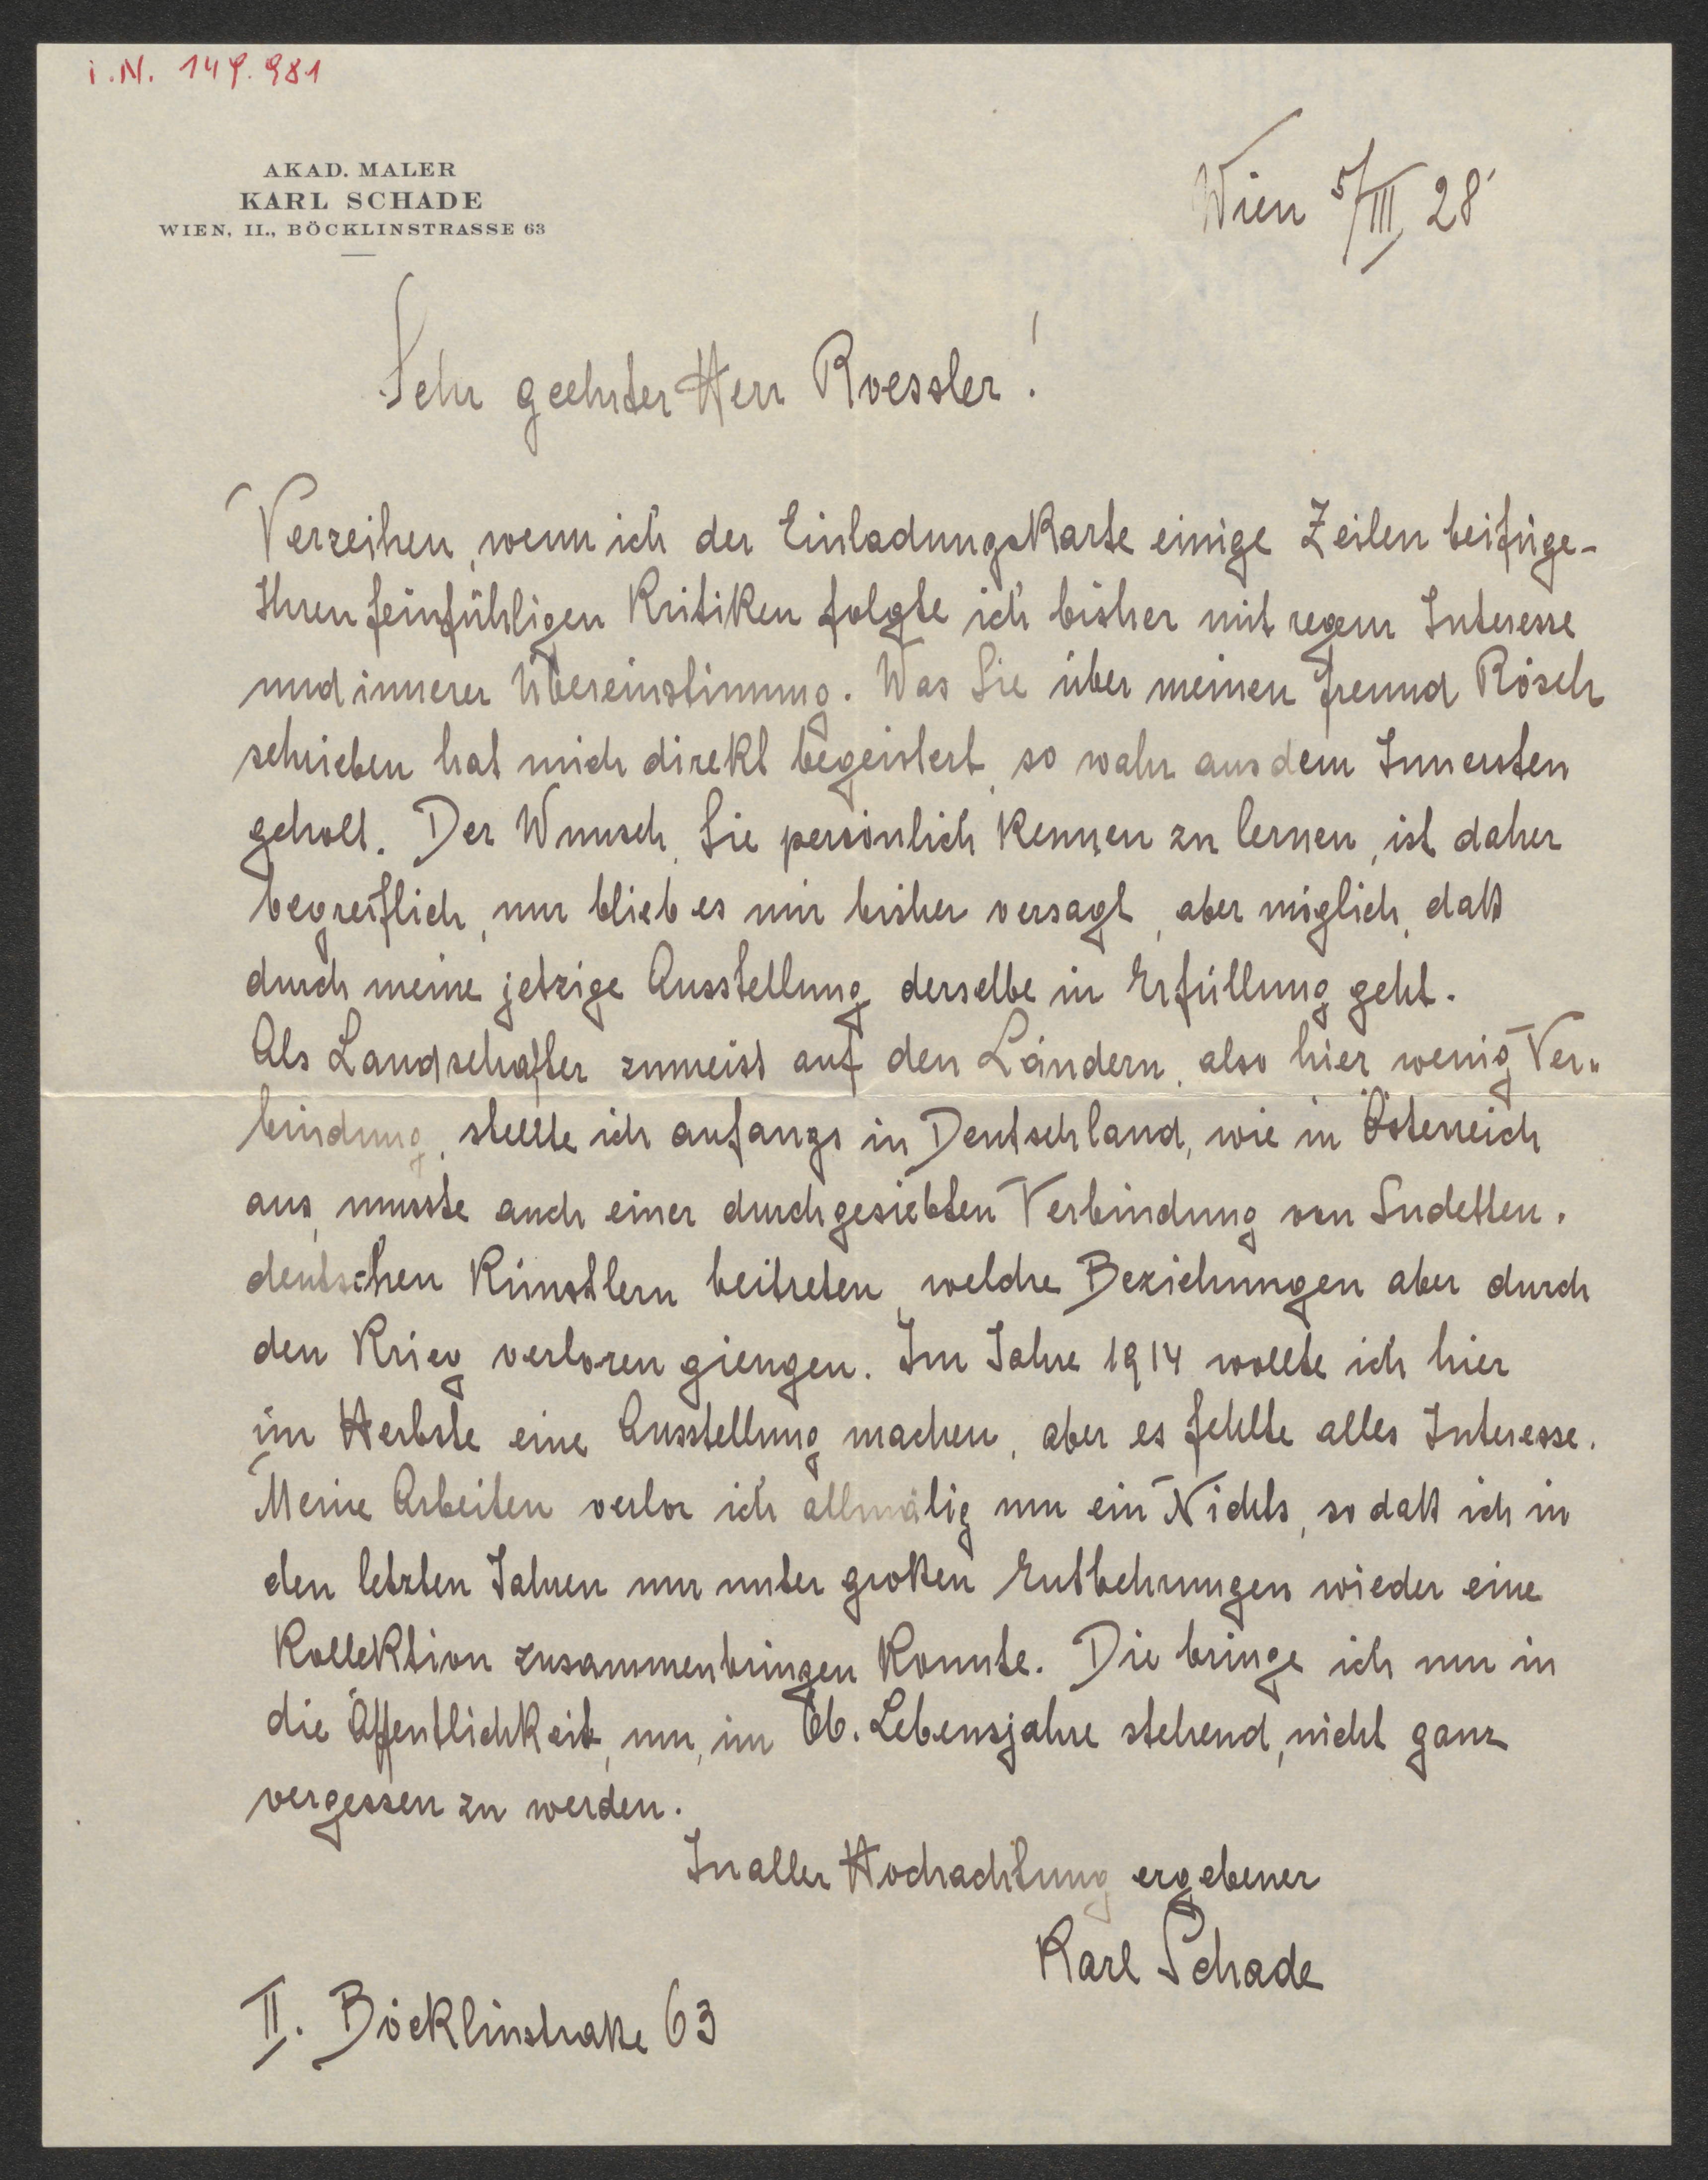 i.N. 149.981
AKAD. MALER
KARL SCHADE
WIEN, II., BÖCKLINSTRASSE 63
Wien 5/III 28
Sehr geehrter Herr Roessler!
Verzeihen, wenn ich der Einladungskarte einige Zeilen beifüge-
Ihren feinfühligen Kritiken folgte ich bisher mit regem Interesse
und innerer Übereinstimmung. Was Sie über meinen Freund Rösch
schrieben hat mich direkt begeistert, so wahr aus dem Innersten
geholt. Der Wunsch, Sie persönlich kennen zu lernen, ist daher
begreiflich, nur blieb es mir bisher versagt, aber möglich, daß
durch meine jetzige Ausstellung derselbe in Erfüllung geht.
Als Landschafter zumeist auf den Ländern, also hier wenig Ver-
bindung, stellte ich anfangs in Deutschland, wie in Österreich
aus, musste auch einer durchgesiebten Verbindung von Sudetten-
deutschen Künstlern beitreten, welche Beziehungen aber durch
den Krieg verloren giengen. Im Jahre 1914 wollte ich hier
im Herbste eine Ausstellung machen, aber es fehlte alles Interesse.
Meine Arbeiten verlor ich allmälig um ein Nichts, so daß ich in
den letzten Jahren nur unter großen Entbehrungen wieder eine
Kollektion zusammenbringen konnte. Die bringe ich nun in
die Öffentlichkeit, um, im 66. Lebensjahre stehend, nicht ganz
vergessen zu werden.
In aller Hochachtung ergebener
Karl Schade
II. Böcklinstraße 63